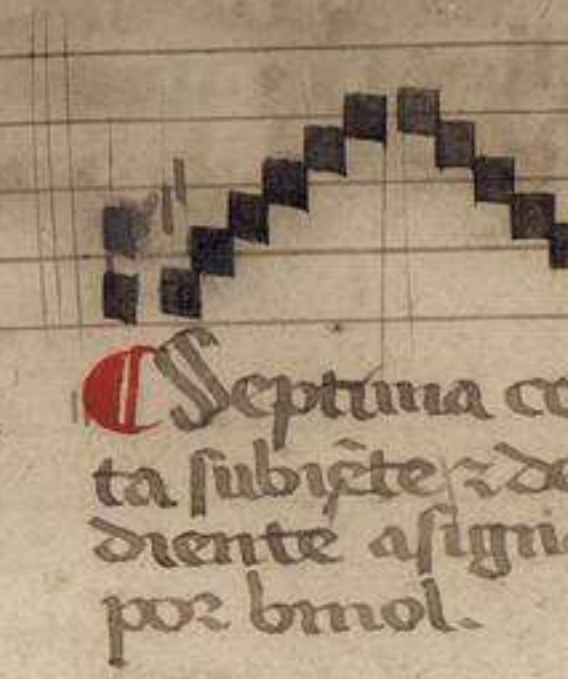 ¶ Septima co
ta subiẽte ⁊ de
diente asigna
por bmol.